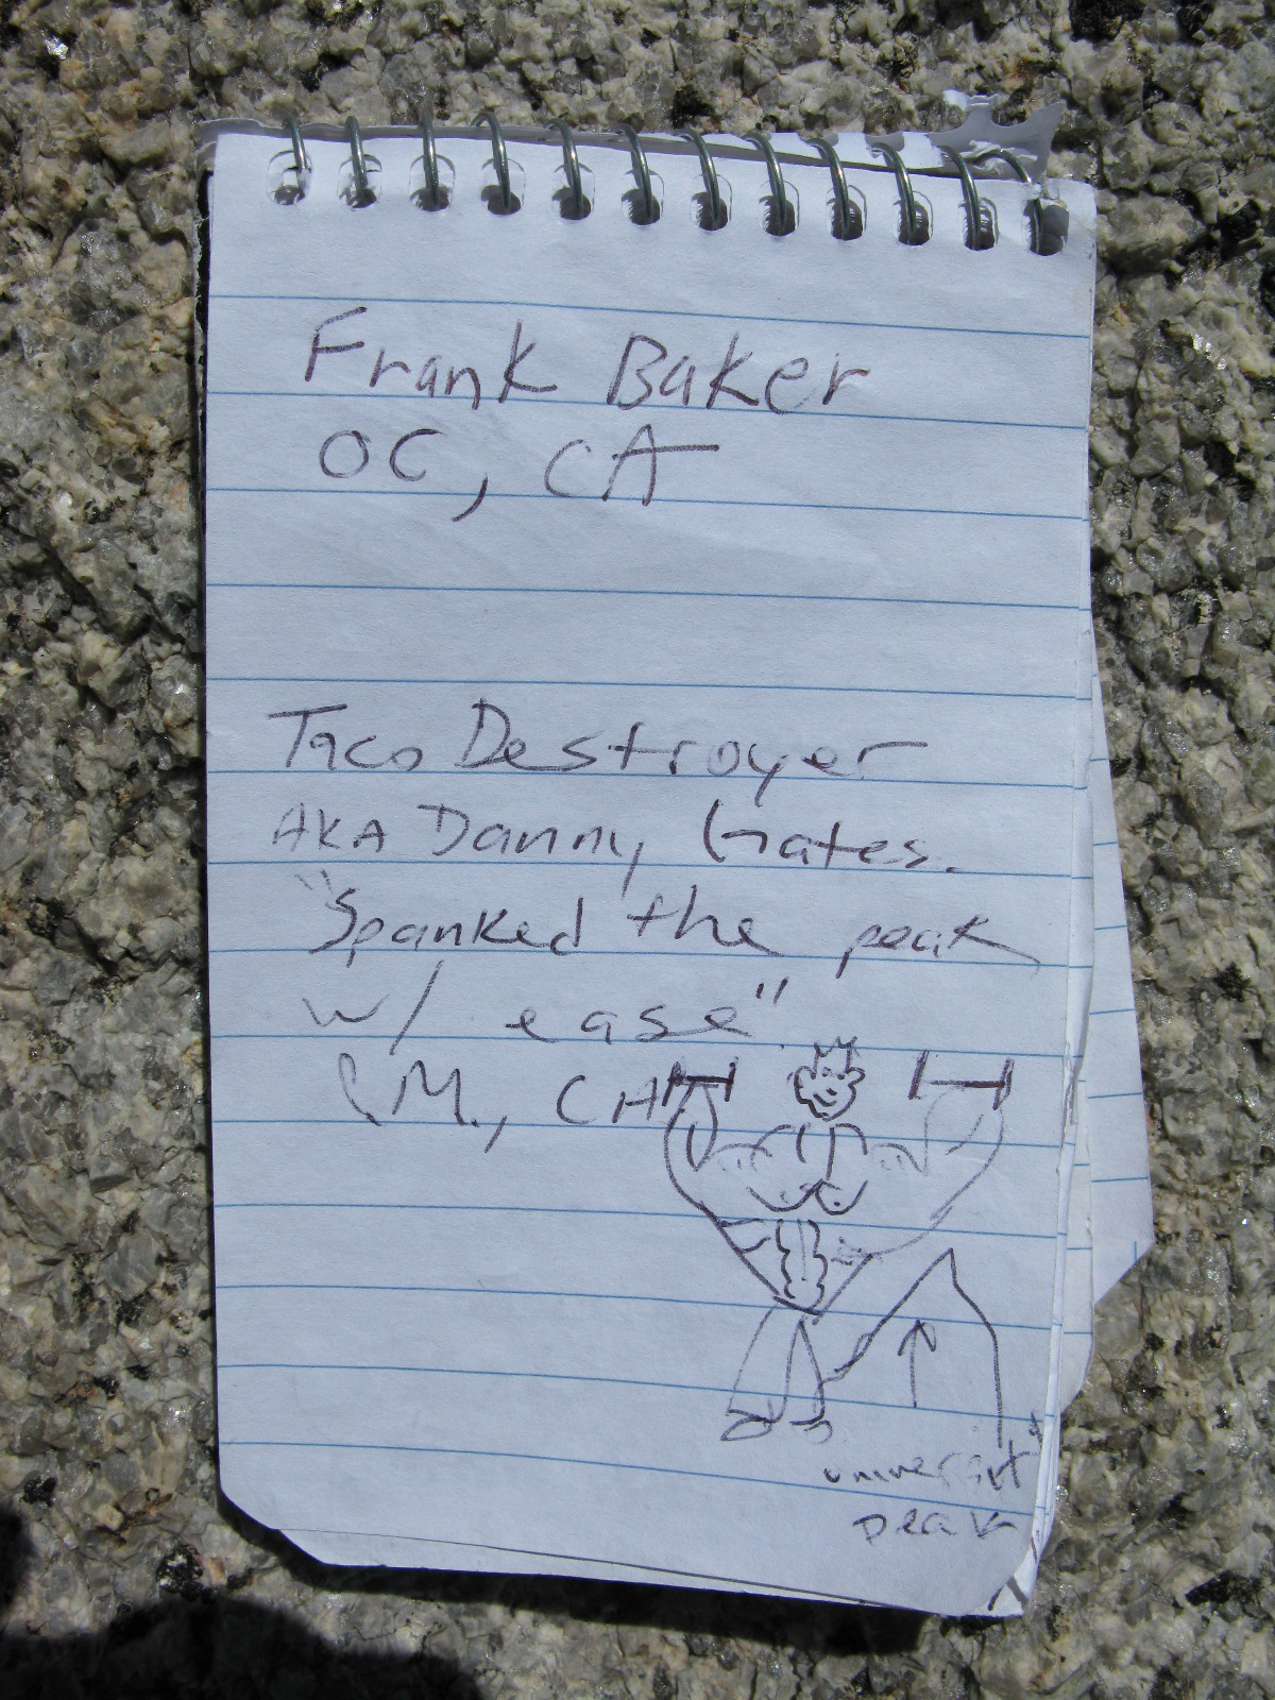 Frank Baker
OC, CA
Taco Destroyer
AKA Danny Gates.
"Spanked the peak
w/ ease".
CA
peak